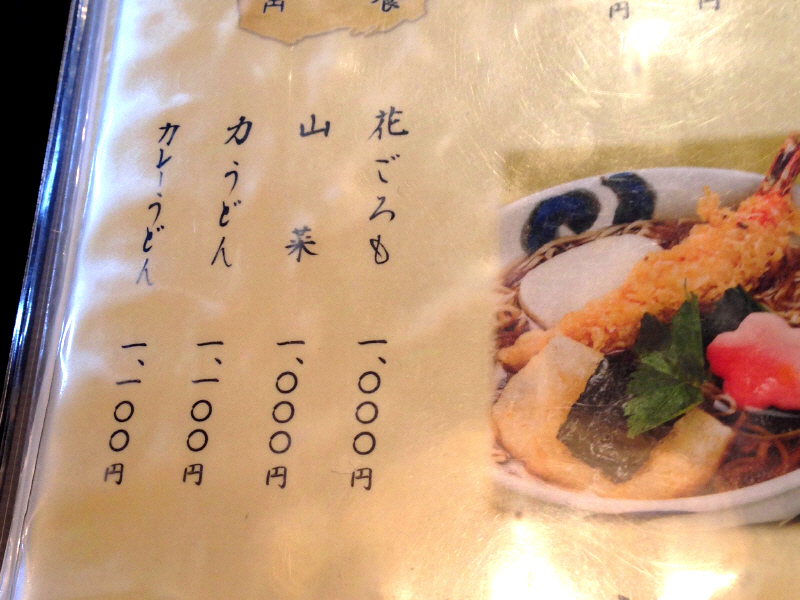 円
円
円
花ごろも 一、〇〇〇円
山菜 一、〇〇〇円
力うどん 一、一〇〇円
カレーうどん 一、一〇〇円